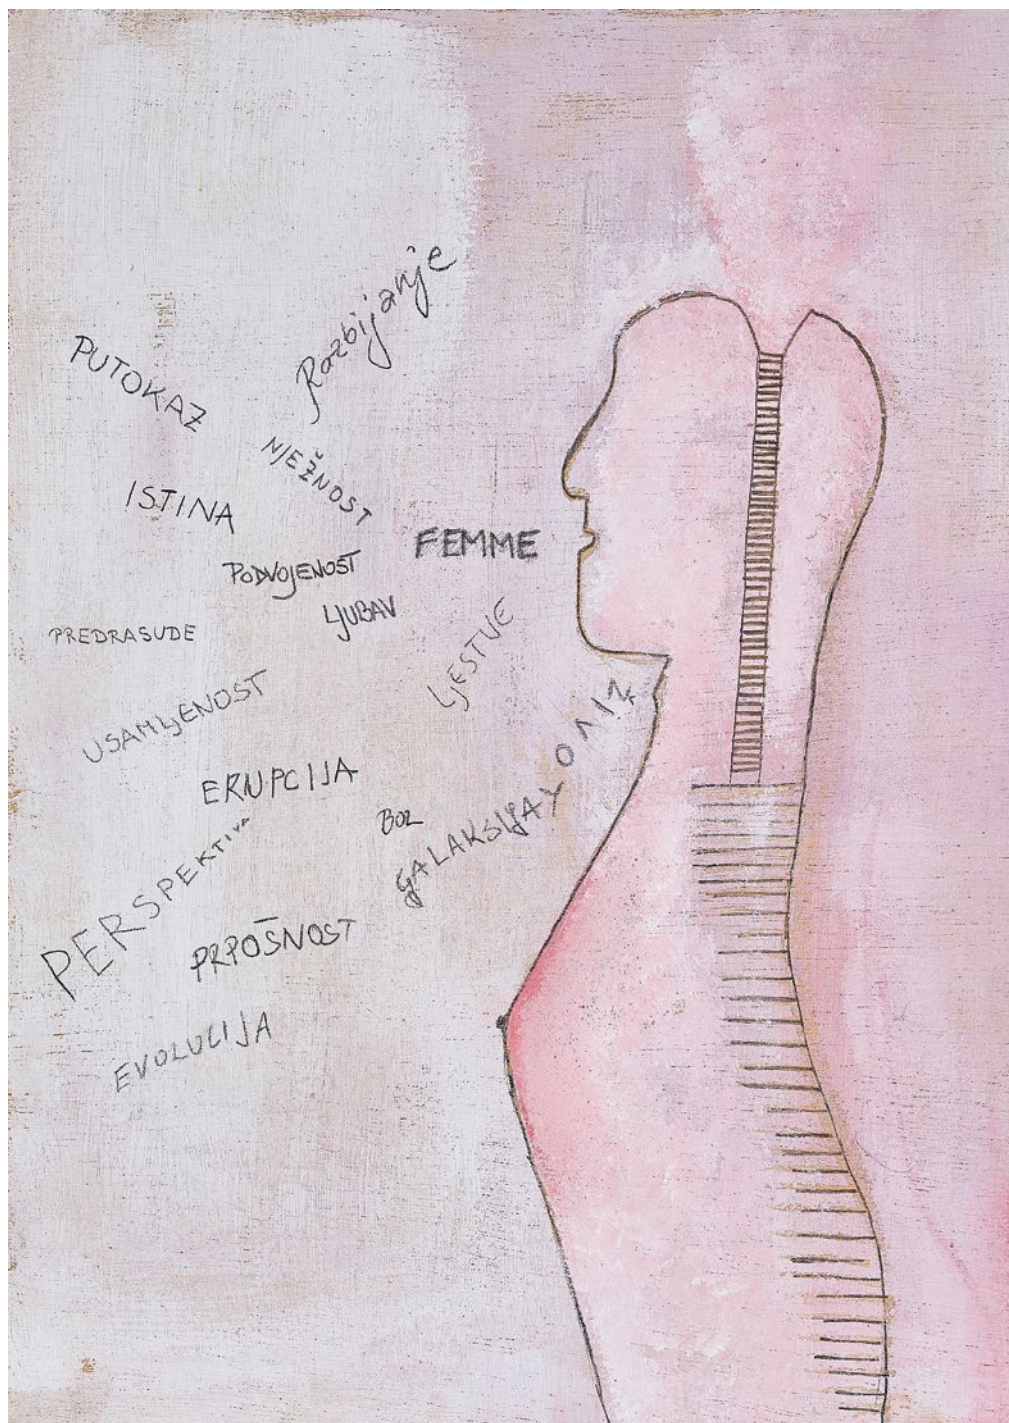 Razbijanje
PUTOKAZ
NJEŽNOST
ISTINA
FEMME
PODVOJENOST
LJUBAV
PREDRASUDE
LJESTVE
USAMLJENOST
ERUPCIJA
BOL
GALAKSIJA
PERSPEKTIVA
EVOLUCIJA